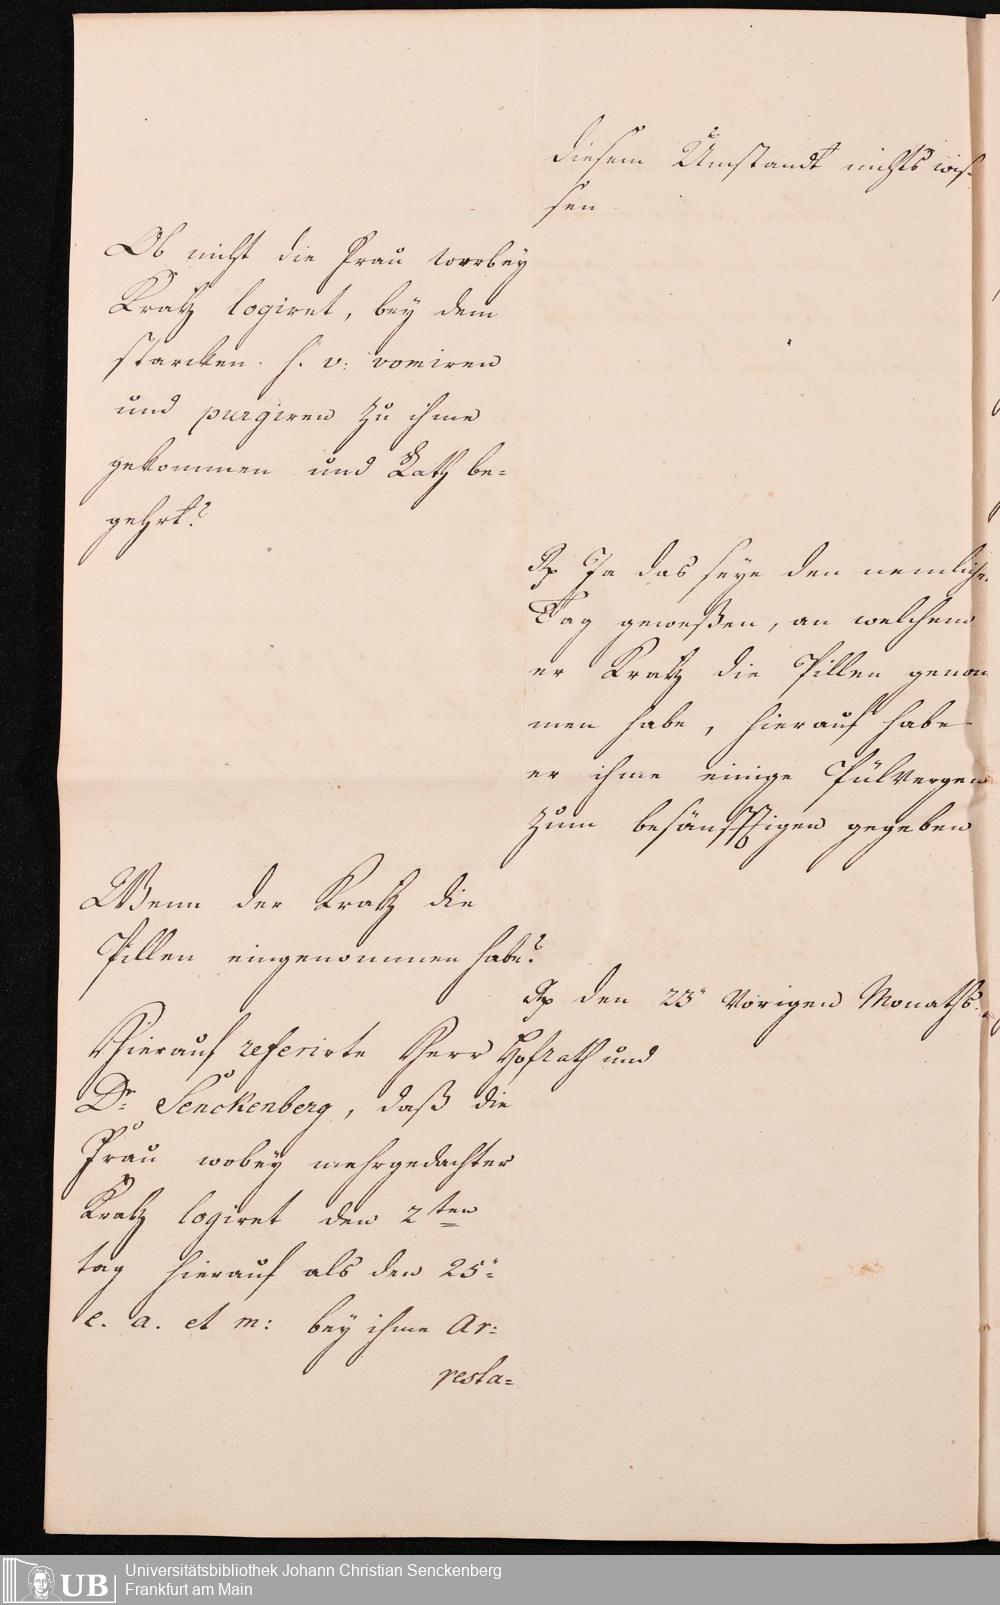 diesem Umstandt nichts wis-
sen
Ob nicht die Frau worbey
Kratz logiret, bey dem
starcken s. v: vomiren
und purgiren zu ihme
gekommen und Rath be=
gehrt?
Rp Ja das seye den nemlichen
Tag geweßen, an welchem
er Kratz die Pillen genom
men habe, hierauf habe
er ihme einige Pülvergen
zum besänfftigen gegeben
Wenn der Kratz die
Pillen eingenommen habe?
Rp den 23" vorigen Monaths.
Hierauf referirte Herr Hofrath und
Dr. Senckenberg, daß die
Frau wobey mehrgedachter
Kratz logiret den 2ten
tag hierauf als den 25"
e. a. et m: bey ihme Ar=
resta=
UB
Universitätsbibliothek Johann Christian Senckenberg
Frankfurt am Main